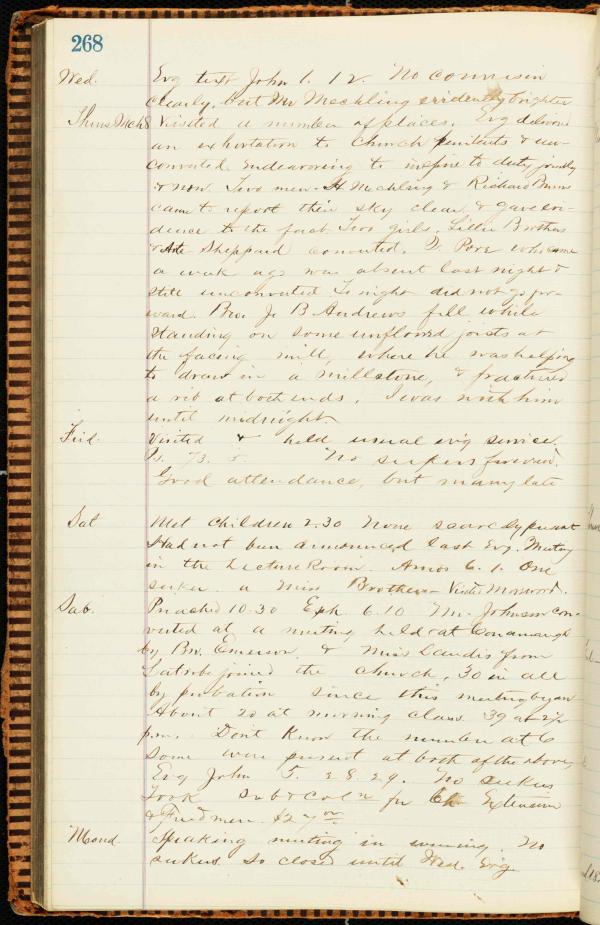 268
Wed. Evg text John 1. 12. No conversion
clearly, but Mr Mechling evidently brighter
Thurs Mch 8 Visited a number of places. Evg delivered
an exhortation to church penitents & un-
converted endeavoring to inspire to duty
& now. Two men H Mechling & Richard
came to report their sky clear, & gave evi-
dence to the fact Two girls, Lillie Brothers
& Sheppard converted. who came
a week ago was absent last night &
still unconverted To night did not go for-
ward. Bro. J. B. Andrews fell while
standing on some unfloored joists at
the facing mill, where he was helping
to draw in a millstone, & fractured
a rib at both ends. I was with him
until midnight.
Frid. Visited & held usual evg service.
Is. 73. 5. No seekers forward.
Good attendance, but many late
Sat Met children 2.30 None scarcely present
Had not been announced last Evg. Meeting
in the Lecture Room. Amos 6. 1. One
seeker a Miss Brothers - Visited
Sab. Preached 10.30 Eph 6.10 Mr. Johnson con-
verted at a meeting held at Conamaugh
by Bro. Emerson, & Miss from
Latrobe joined the church, 30 in all
by probation since this meeting began
About 20 at morning class 39 at 2½
p.m. Don't know the number at 6
Some were present at both of the above,
Evg John 5. 28 29. No seekers
Took sub & coln for Ch Extension
& Freedmen. $27
Mond. Speaking meeting in evening. No
seekers So closed until Wed. Evg